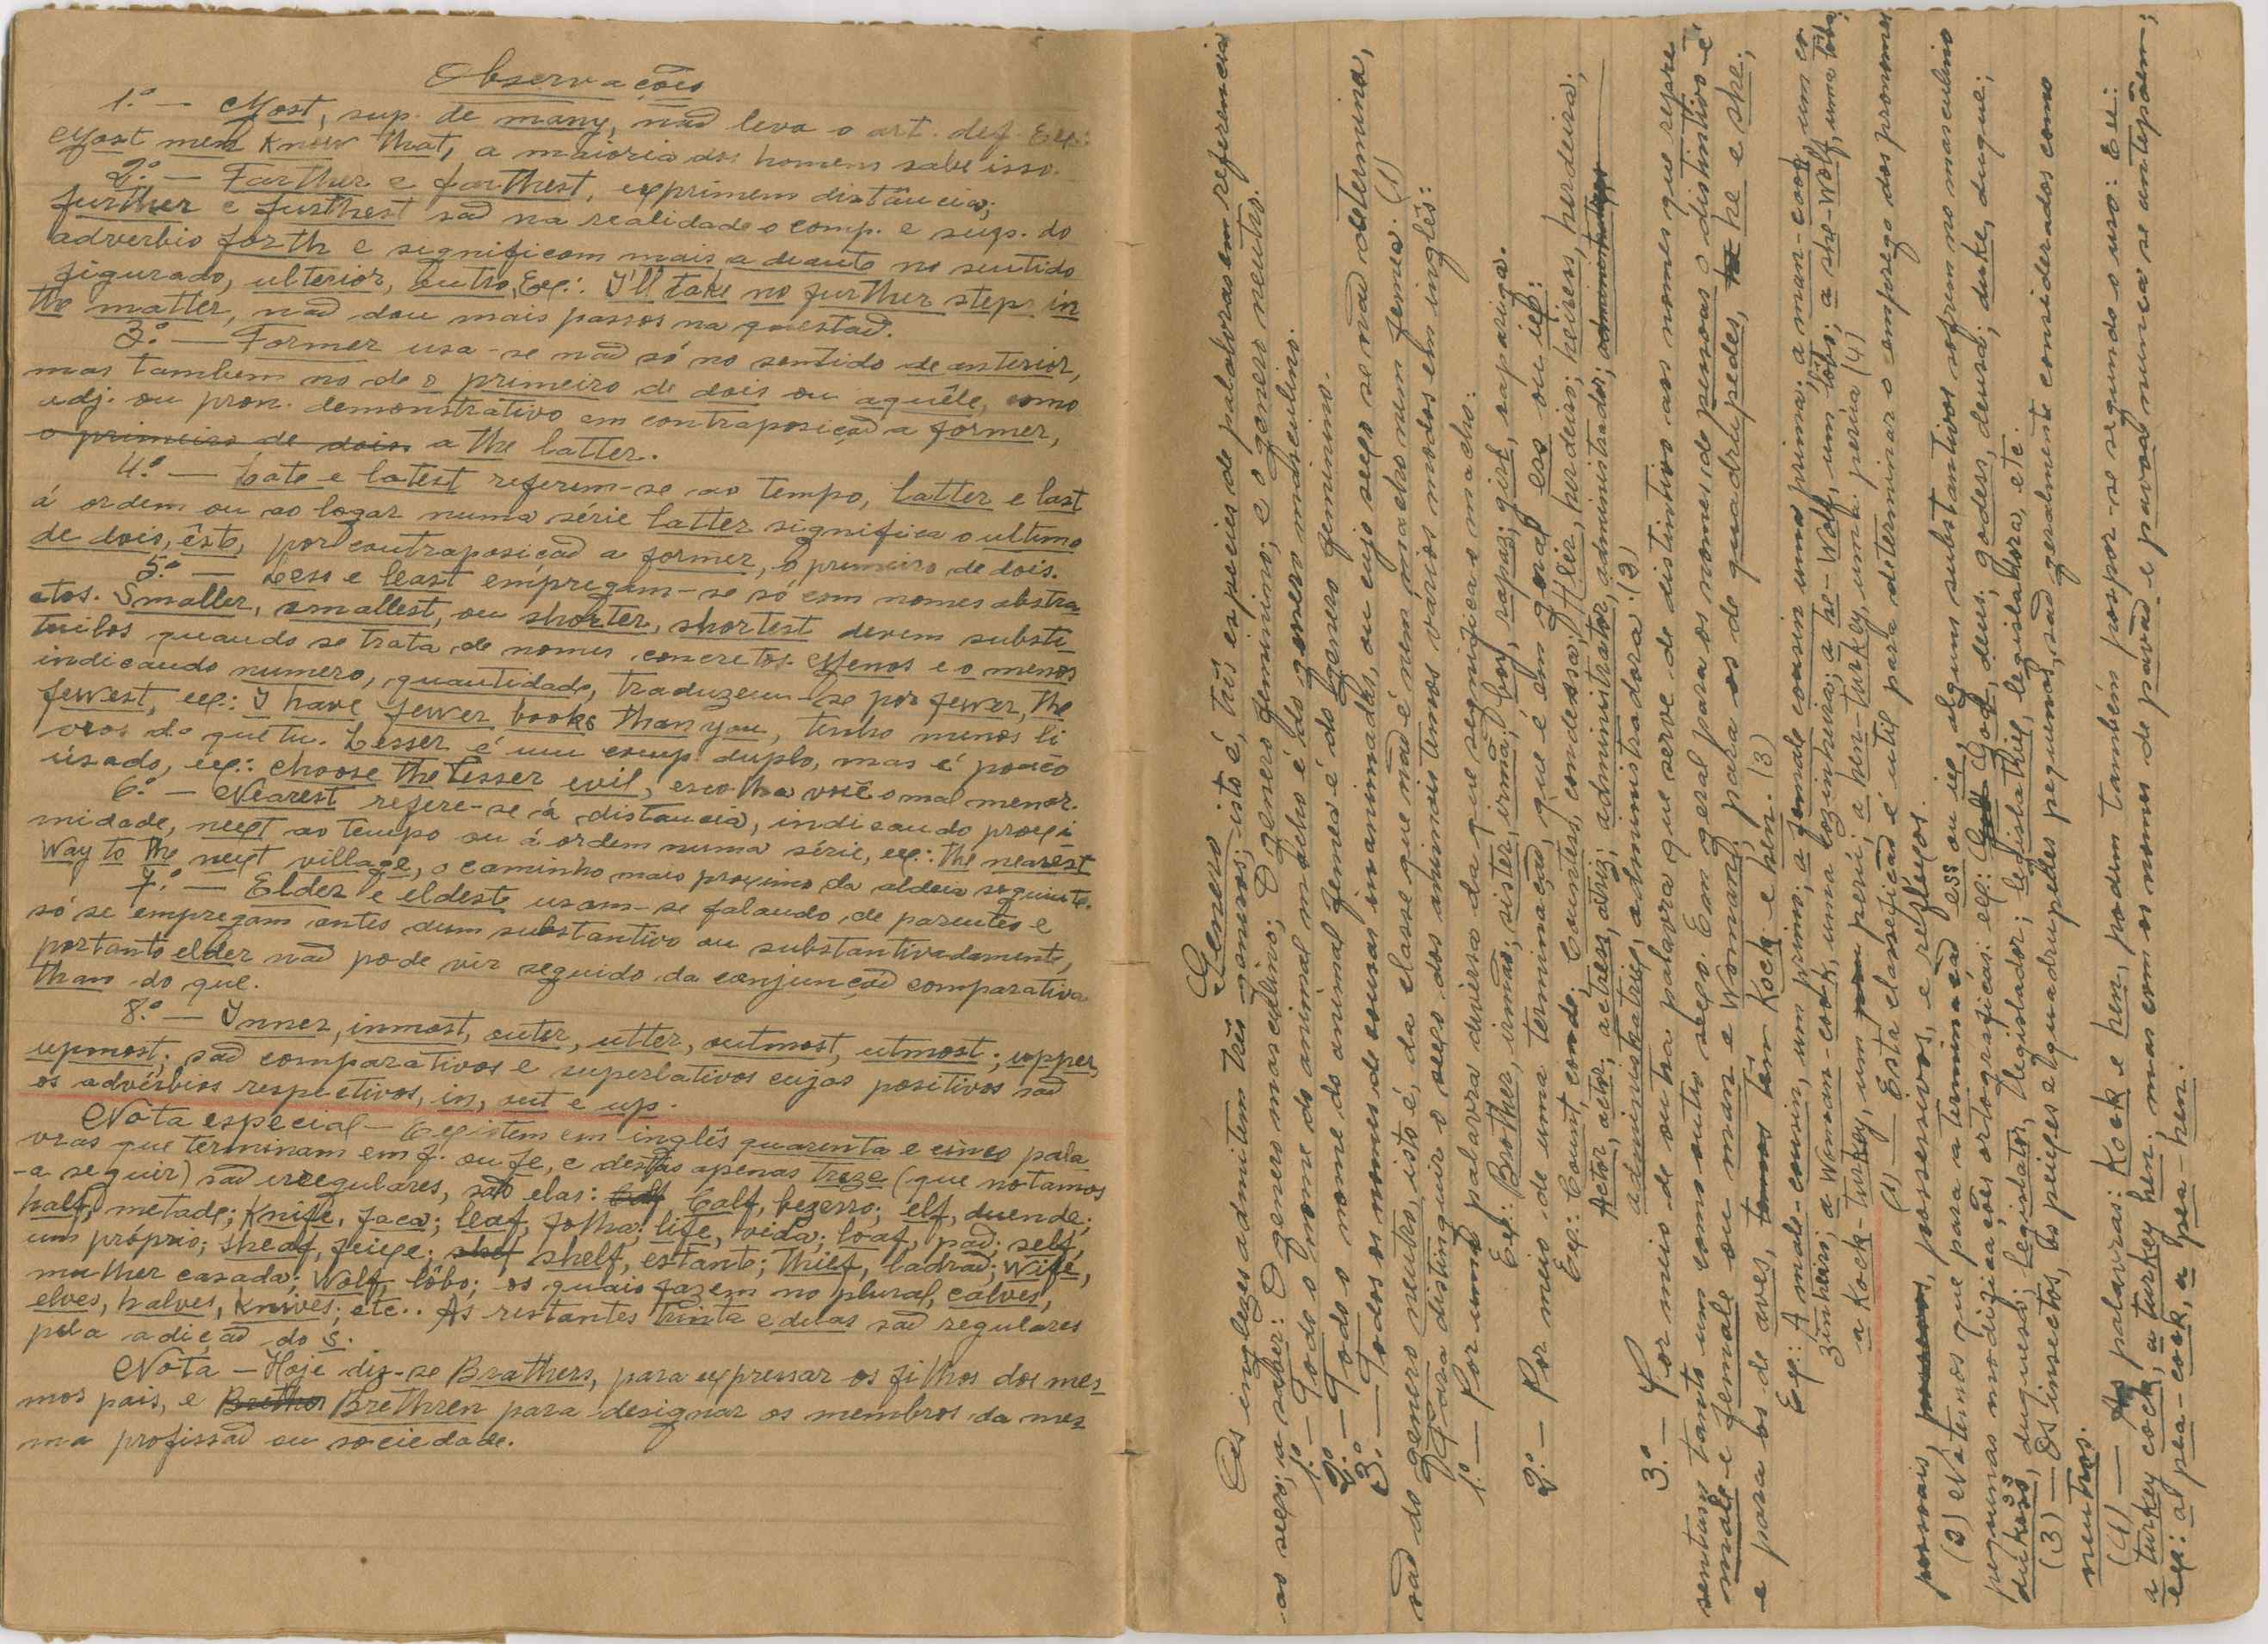 Observações
1.º — Most, sup. de many, não leva o art. def. Ex.:
Most men know that, a maioria dos homens sabe isso.
2.º — Farther e farthest, exprimem distância;
further e furthest são na realidade o comp. e sup. do
adverbio forth e significam mais a deante no sentido
figurado, ulterior, outro, Ex.: I'll take no further steps in
the matter, não dou mais passos na questão.
3.º — Former usa-se não só no sentido de anterior,
mas tambem no de o primeiro de dois ou aquêle, como
adj. ou pron. demonstrativo em contraposição a former,
o primeiro de dois a the latter.
4.º — Late e latest referem-se ao tempo, latter e last
á ordem ou ao logar numa série latter significa o ultimo
de dois, êste, por contraposição a former, o primeiro de dois.
5.º — Less e least empregam-se só com nomes abstra
ctos. Smaller, smallest, ou shorter, shortest devem substi-
tuilos quando se trata de nomes concretos. Menos e o menos
indicando numero, quantidade, traduzem-se por fewer, the
fewest, ex.: I have fewer books than you, tenho menos li
vros do que tu. Lesser é um comp. duplo, mas é pouco
usado, ex.: choose the lesser evil, escolha você o mal menor.
6.º — Nearest refere-se á distancia, indicando proxi
midade, next ao tempo ou á ordem numa série, ex.: the nearest
way to the next village, o caminho mais proximo da aldeia seguinte.
7.º — Elder e eldest usam-se falando de parentes e
só se empregam antes dum substantivo ou substantivadamente,
portanto elder não pode vir seguido da conjunção comparativa
than do que.
8.º — Inner, inmost, outer, utter, outmost, utmost; upper,
upmost; são comparativos e superlativos cujos positivos são
os advérbios respectivos, in, out e up.
Nota especial — Existem em inglês quarenta e cinco pala
vras que terminam em f. ou fe, e destas apenas treze (que notamos
-a seguir) são irregulares, são elas: Calf, bezerro; elf, duende;
half, metade; Knife, faca; leaf, folha; life, vida; loaf, pão; self,
um próprio; sheaf, feixe; shelf, estante; thief, ladrão; wife,
mulher casada; Wolf, lôbo; os quais fazem no plural, calves,
elves, halves, knives; etc.. As restantes trinta e duas são regulares
pela adição do s.
Nota — Hoje diz-se Brothers, para expressar os filhos dos mes
mos pais, e Brethren para designar os membros da mes
ma profissão ou sociedade.
Genero
Os inglezes admitem três generos; isto é, três especies de palavras em referencia
ao sexo; a saber: O genero masculino; O genero feminino; e o genero neutro.
1.º — Todo o nome do animal macho é do genero masculino.
2.º — Todo o nome do animal femea é do genero feminino.
3.º — Todos os nomes de cousas inanimadas, ou cujo sexo se não determina,
são do genero neutro, isto é, da classe que não é nem macho nem femea. (1)
Para distinguir o sexo dos animais temos vários modos em inglês:
1.º — Por uma palavra diversa da que significa o macho:
Ex.: Brother, irmão; sister, irmã; boy, rapaz; girl, rapariga.
2.º — Por meio de uma terminação, que é em geral ess ou ix:
Ex.: Count, conde; Countess, condessa; Heir, herdeiro; heiress, herdeira;
Actor, actor; actress, atriz; administrator, administrador;
administratrix, administradora. (2)
3.º — Por meio de outra palavra que serve de distintivo aos nomes que repre
sentam tanto um como outro sexo. Em geral para os nomes de pessoas o distintivo é
male e female ou man e woman; para os de quadrupedes, he e she;
e para os de aves, tem Kock e hen. (3)
Ex.: A male-cousin, um primo; a female cousin uma prima; a man-cook, um co
zinheiro; a Woman-cook, uma cozinheira; a he-Wolf, um lobo; a she-Wolf, uma loba;
a Kock-turkey, um perú; a hen-turkey, uma perúa (4)
(1) — Esta classificação é util para determinar o emprego dos pronomes
pessoais, possessivos, e reflexos.
(2) Notemos que para a terminação ess ou ix, alguns substantivos sofrem no masculino
pequenas modificações ortográficas: ex.: God, deus; godess, deusa; duke, duque;
dukess, duquesa; legislator, legislador; legislatrix, legisladora, etc.
(3) — Os insectos, os peixes e quadrupedes pequenos, são geralmente considerados como
neutros.
(4) — As palavras: Kock e hen, podem também pospor-se segundo o uso: Ex:
a turkey cock, a turkey hen; mas com os nomes de pávão e pavoa nunca se antepõem;
ex: a pea-cock, a pea-hen.